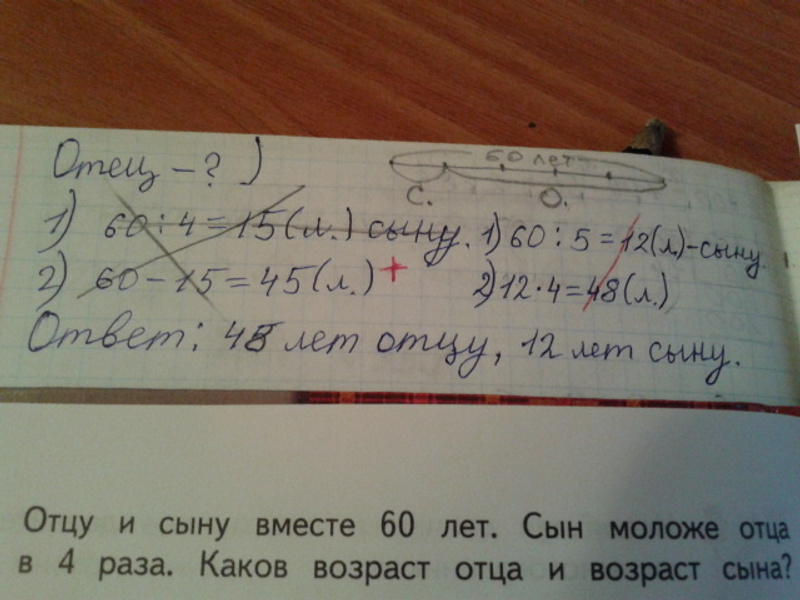 Отец – ? )
60 лет
С. О.
1) 60 : 4 = 15 (л.) сыну. 1) 60 : 5 = 12 (л) – сыну.
2) 60 – 15 = 45 (л.) + 2) 12 · 4 = 48 (л.)
Ответ: 48 лет отцу, 12 лет сыну.
Отцу и сыну вместе 60 лет. Сын моложе отца
в 4 раза. Каков возраст отца и возраст сына?